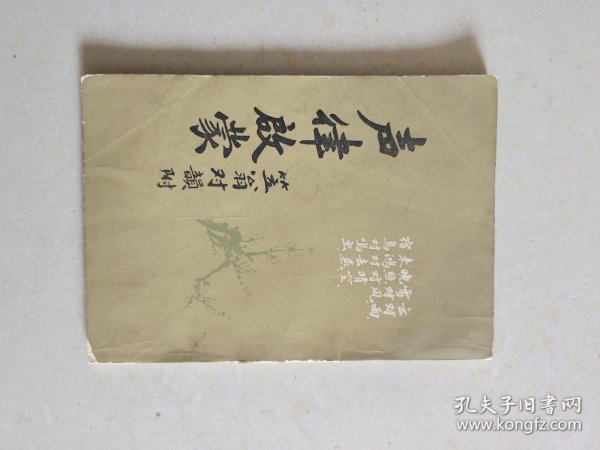 声律啟蒙
笠翁对韻附
云对雨
雪对风
晚照对晴空
来鸿对去燕
宿鸟对鸣虫
孔夫子旧书网
www.kongfz.com